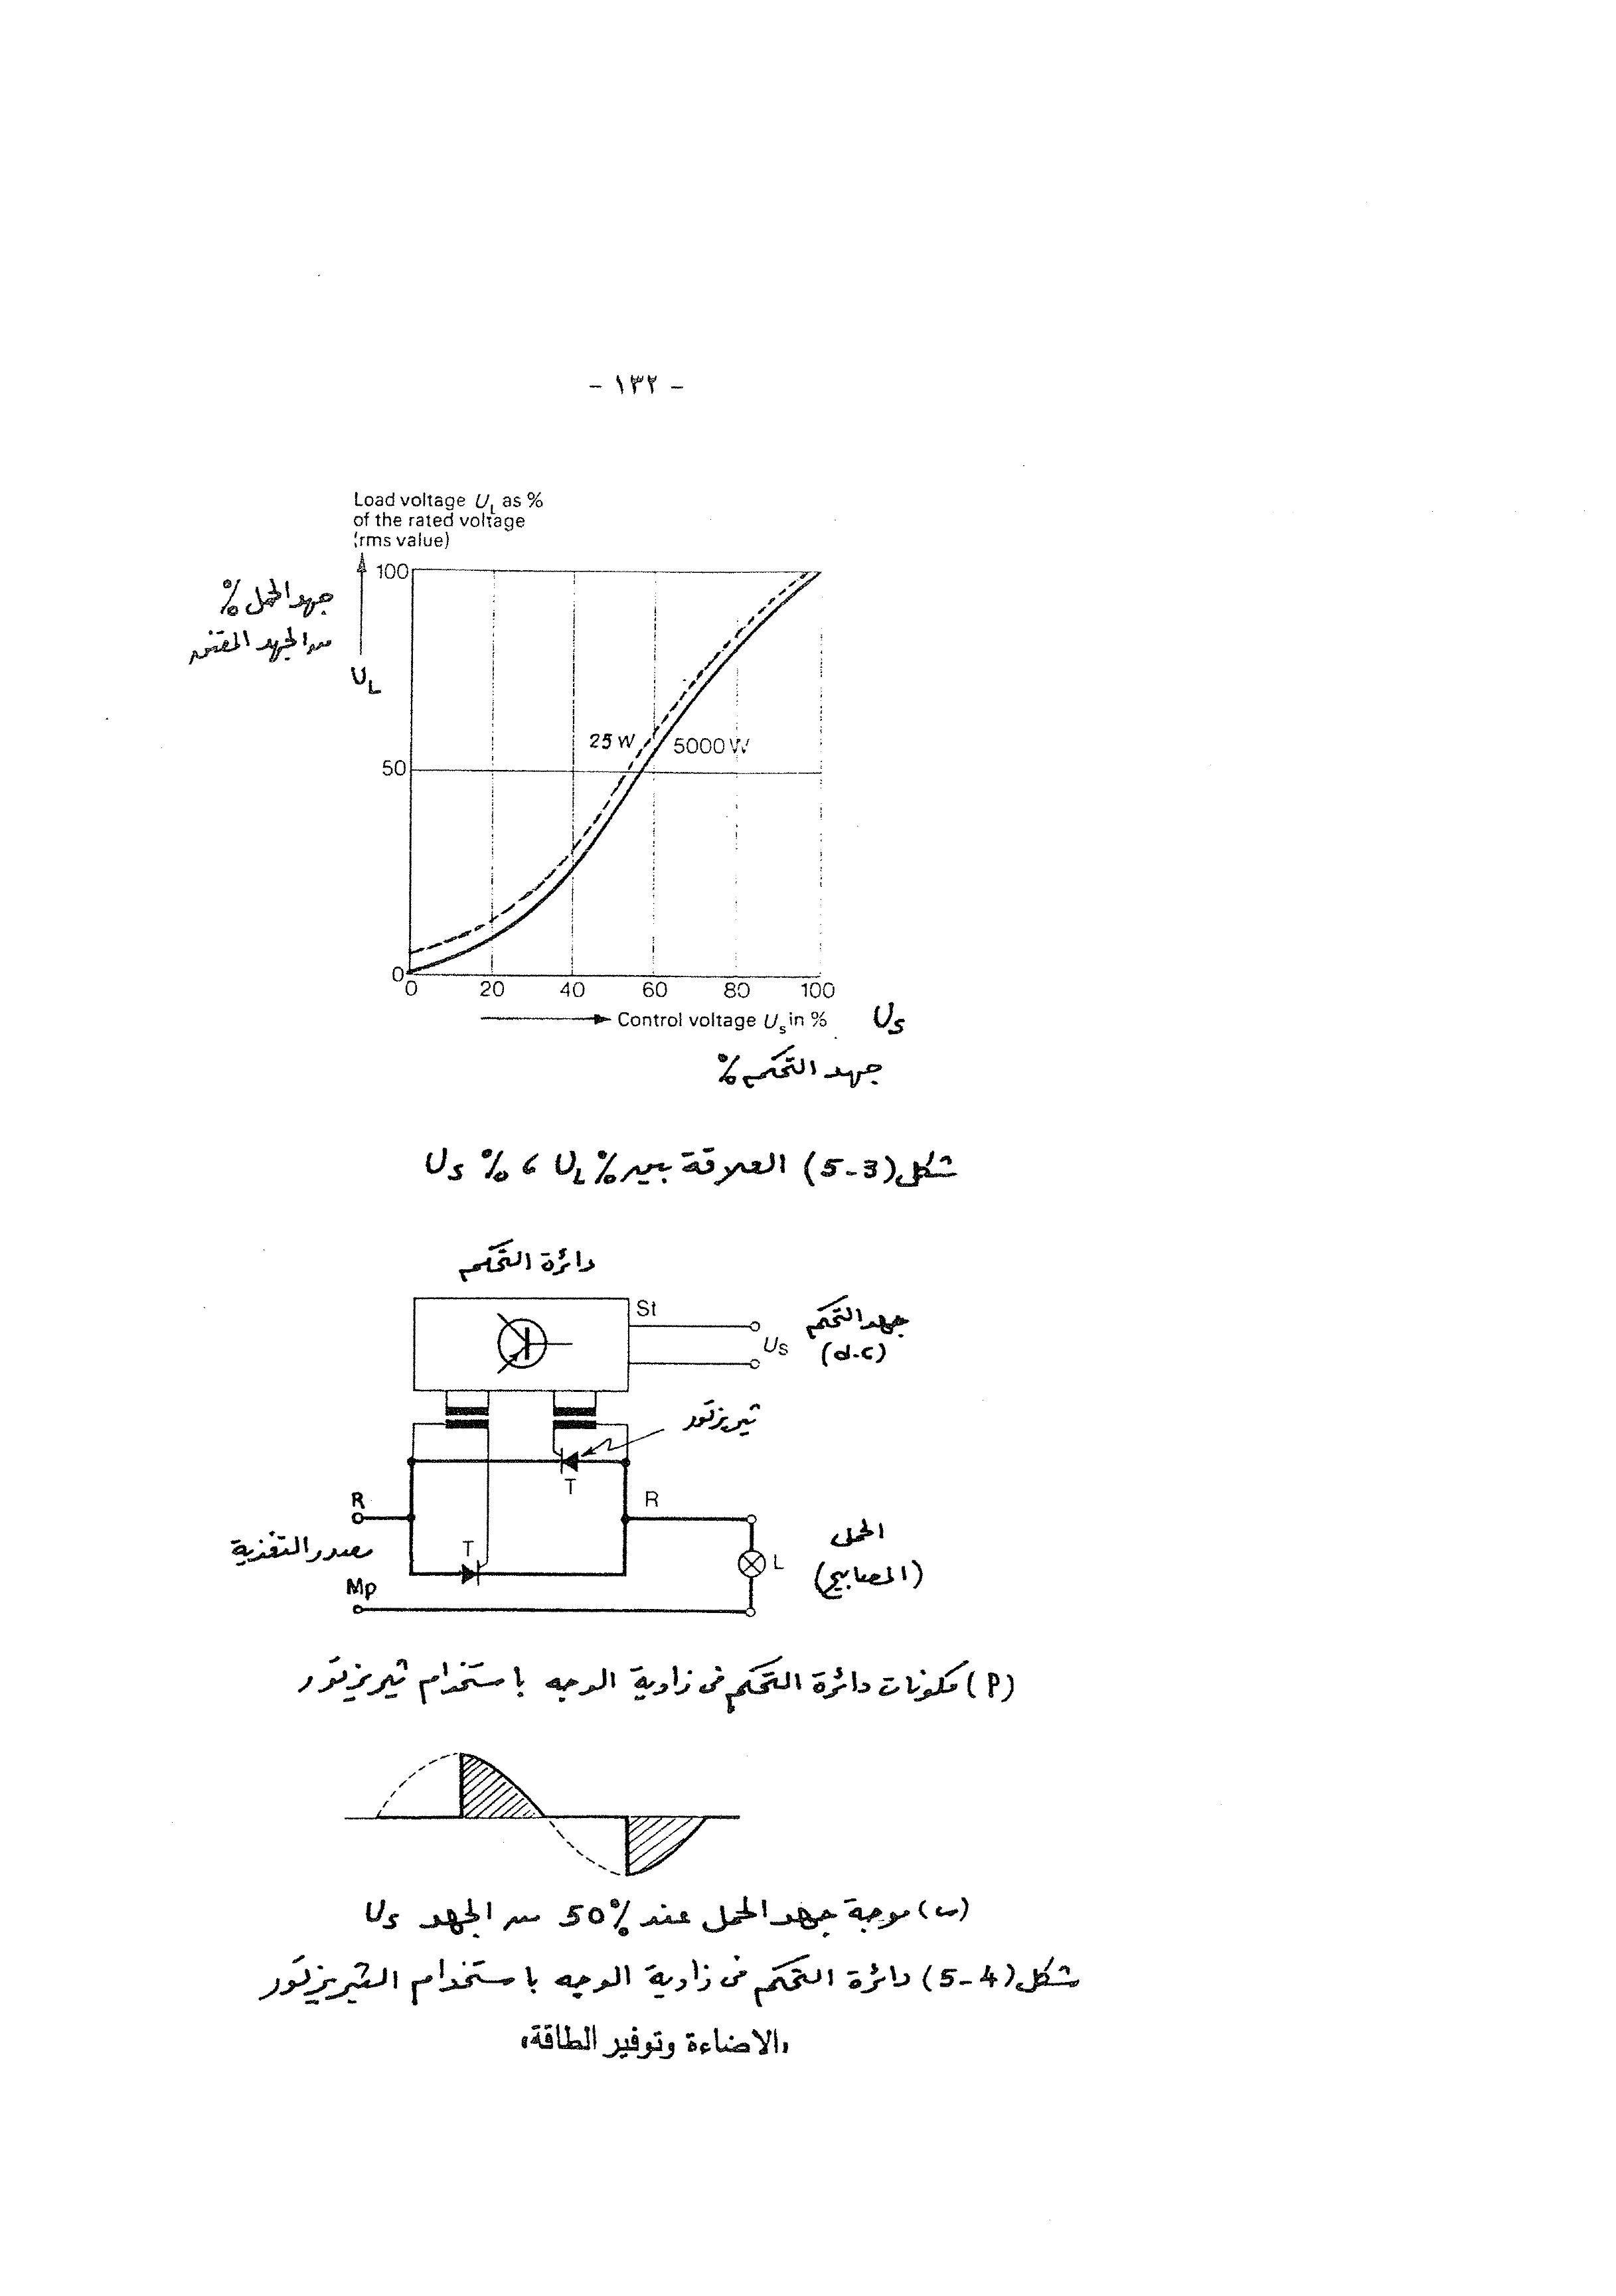 - ١٣٢ -
Load voltage U_L as %
of the rated voltage
(rms value)
100
جهد الحمل %
من الجهد المقنن
U_L
25 W
5000 W
50
0
0 20 40 60 80 100
Control voltage U_s in %
U_s
جهد التحكم %
شكل (3-5) العلاقة بين U_L % ، U_s %
دائرة التحكم
St
جهد التحكم
U_s
(d.c)
ثيريزتور
T
R
R
الحمل
مصدر التغذية
T
L
(المصابيح)
Mp
(أ) مكونات دائرة التحكم فى زاوية الوجه باستخدام ثيريزتور
(ب) موجة جهد الحمل عند 50% من الجهد U_s
شكل (4-5) دائرة التحكم فى زاوية الوجه باستخدام الثيريزتور
،الاضاءة وتوفير الطاقة،